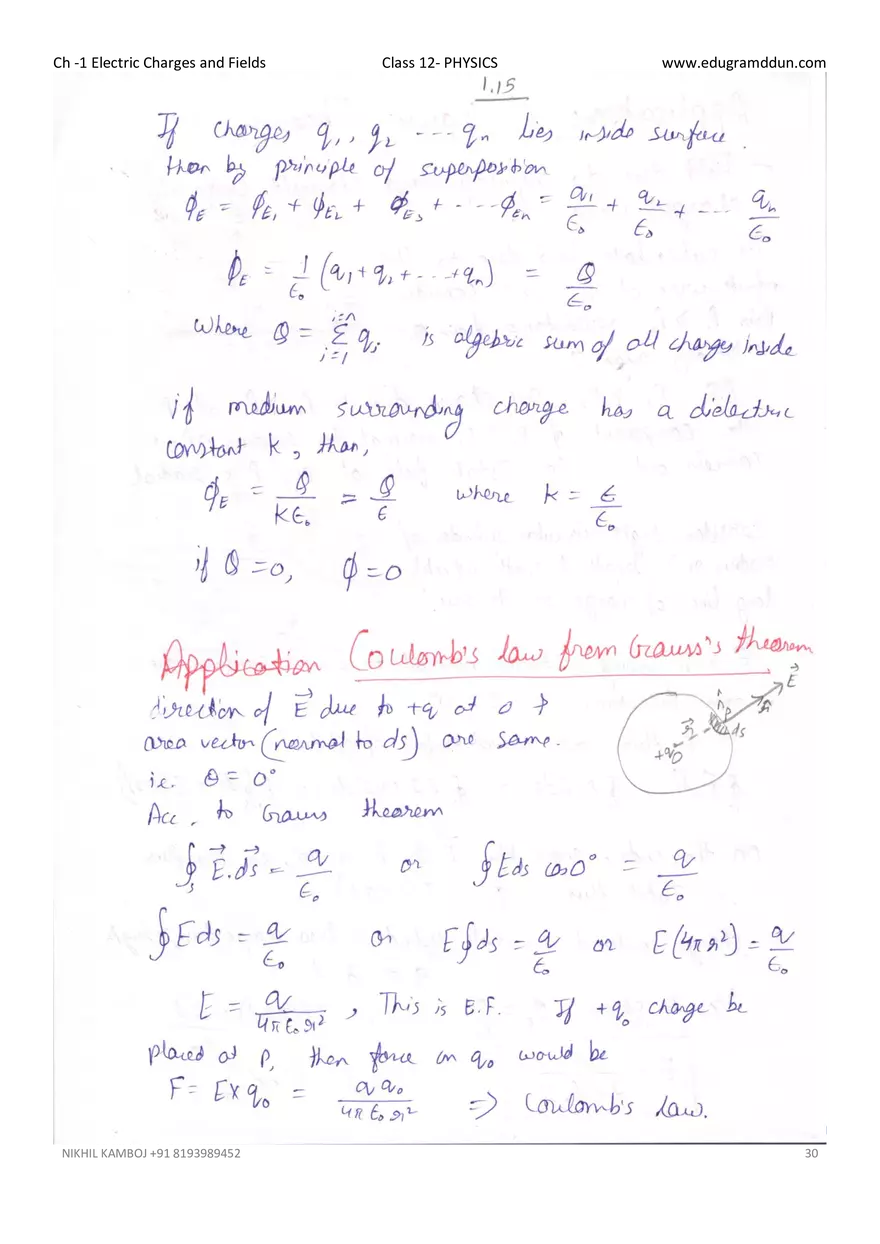 Ch -1 Electric Charges and Fields Class 12- PHYSICS www.edugramddun.com
1.15
If charges q₁, q₂ ---- qn lies inside surface.
then by principle of superposition
ϕE = ϕE₁ + ϕE₂ + ϕE₃ + ----ϕEn = q₁/ϵ₀ + q₂/ϵ₀ + --- qn/ϵ₀
ϕE = 1/ϵ₀ (q₁+q₂+---+qn) = Q/ϵ₀
where Q = Σ(i=1 to i=n) qi is algebric sum of all charges inside
if medium surrounding charge has a dielectric
constant K, than,
ϕE = Q/Kϵ₀ = Q/ϵ where K = ϵ/ϵ₀
if Q=0, ϕ=0
Application Coulomb's law from Grauss's theorem
direction of E⃗ due to +q at O &
area vector (normal to ds) are same.
i.e. θ = 0°
Acc. to Grauss theorem
E⃗
n̂
P
r⃗
ds
+q
O
∮s E⃗.ds⃗ = q/ϵ₀ or ∮Eds cos0° = q/ϵ₀
∮Eds = q/ϵ₀ or E∮ds = q/ϵ₀ or E(4πr²) = q/ϵ₀
E = q/4πϵ₀r² , This is E.F. If +q₀ charge be
placed at P, then force on q₀ would be
F= E×q₀ = qq₀/4πϵ₀r² => Coulomb's law.
NIKHIL KAMBOJ +91 8193989452 30